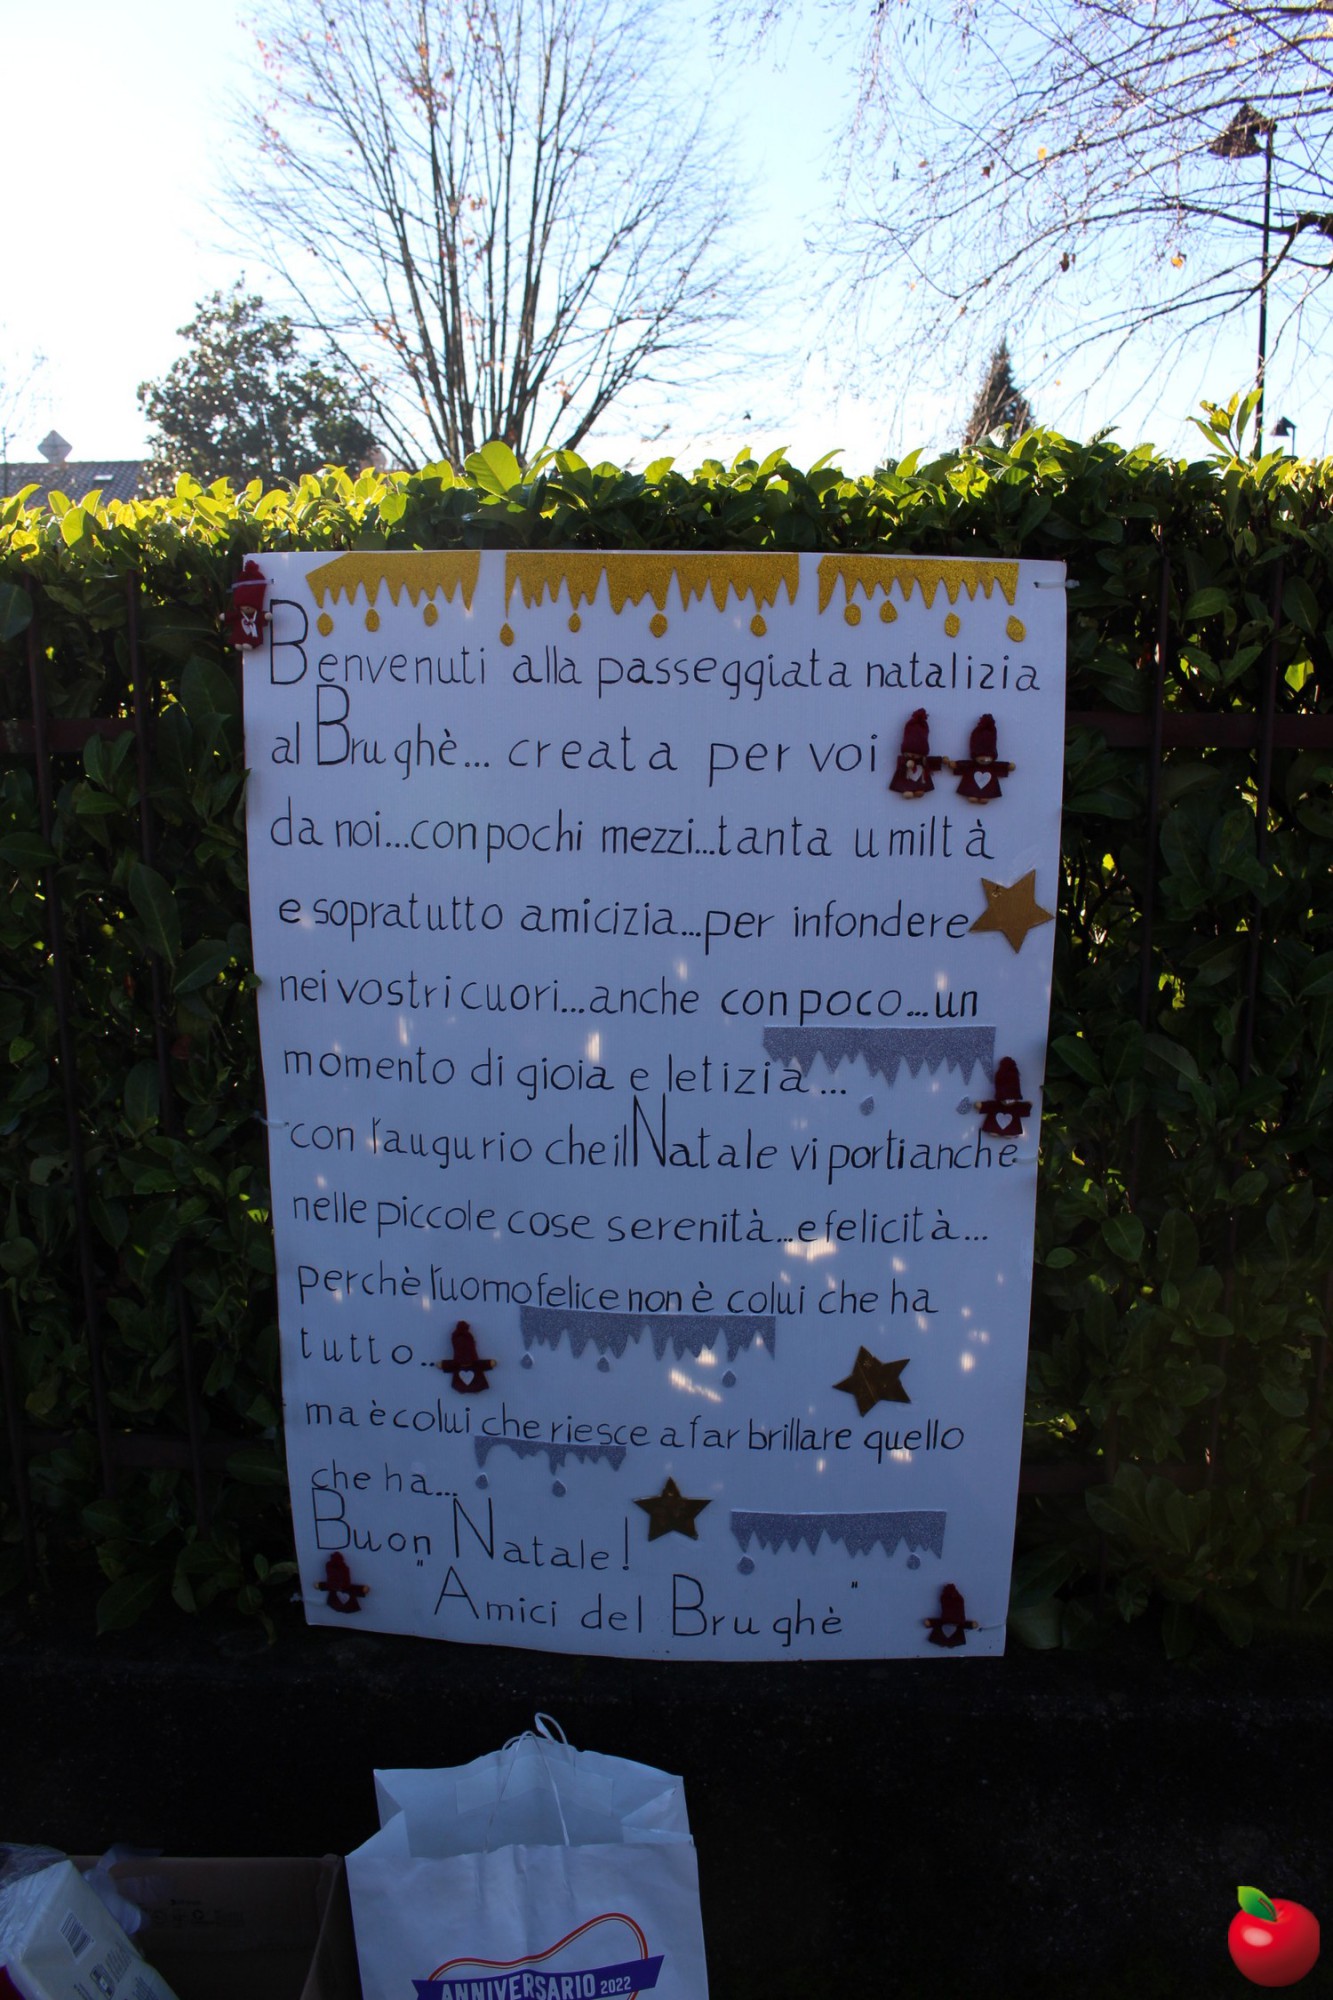 Benvenuti alla passeggiata natalizia
al Brughè... creata per voi
da noi...con pochi mezzi...tanta umiltà
e sopratutto amicizia...per infondere
nei vostri cuori...anche con poco...un
momento di gioia e letizia...
con l'augurio che il Natale vi porti anche
nelle piccole cose serenità...e felicità...
perchè l'uomo felice non è colui che ha
tutto...
ma è colui che riesce a far brillare quello
che ha...
Buon Natale!
"Amici del Brughè"
ANNIVERSARIO 2022